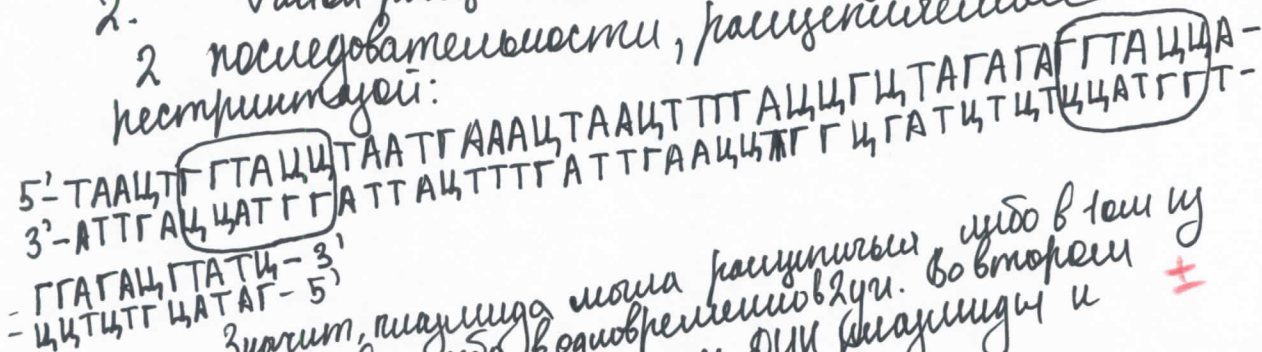 2.
2 последовательности,
рестриктазой:
5'-ТААЦТГГТАЦЦТААТГАААЦТААЦТТГГАЦЦГЦТАГАГАГГТАЦЦА-
3'-АТТГАЦЦАТГГАТТАЦТТТГАТТГААЦЦТГГЦГАТЦТЦТЦЦАТГГТ-
- ГГАГАЦГТАТЦ-3'
- ЦЦТЦТГЦАТАГ-5'
Значит, плазмида могла расщепиться либо в 1ом из
одновременно в 2ух. Во втором
ДНК плазмиды и
±